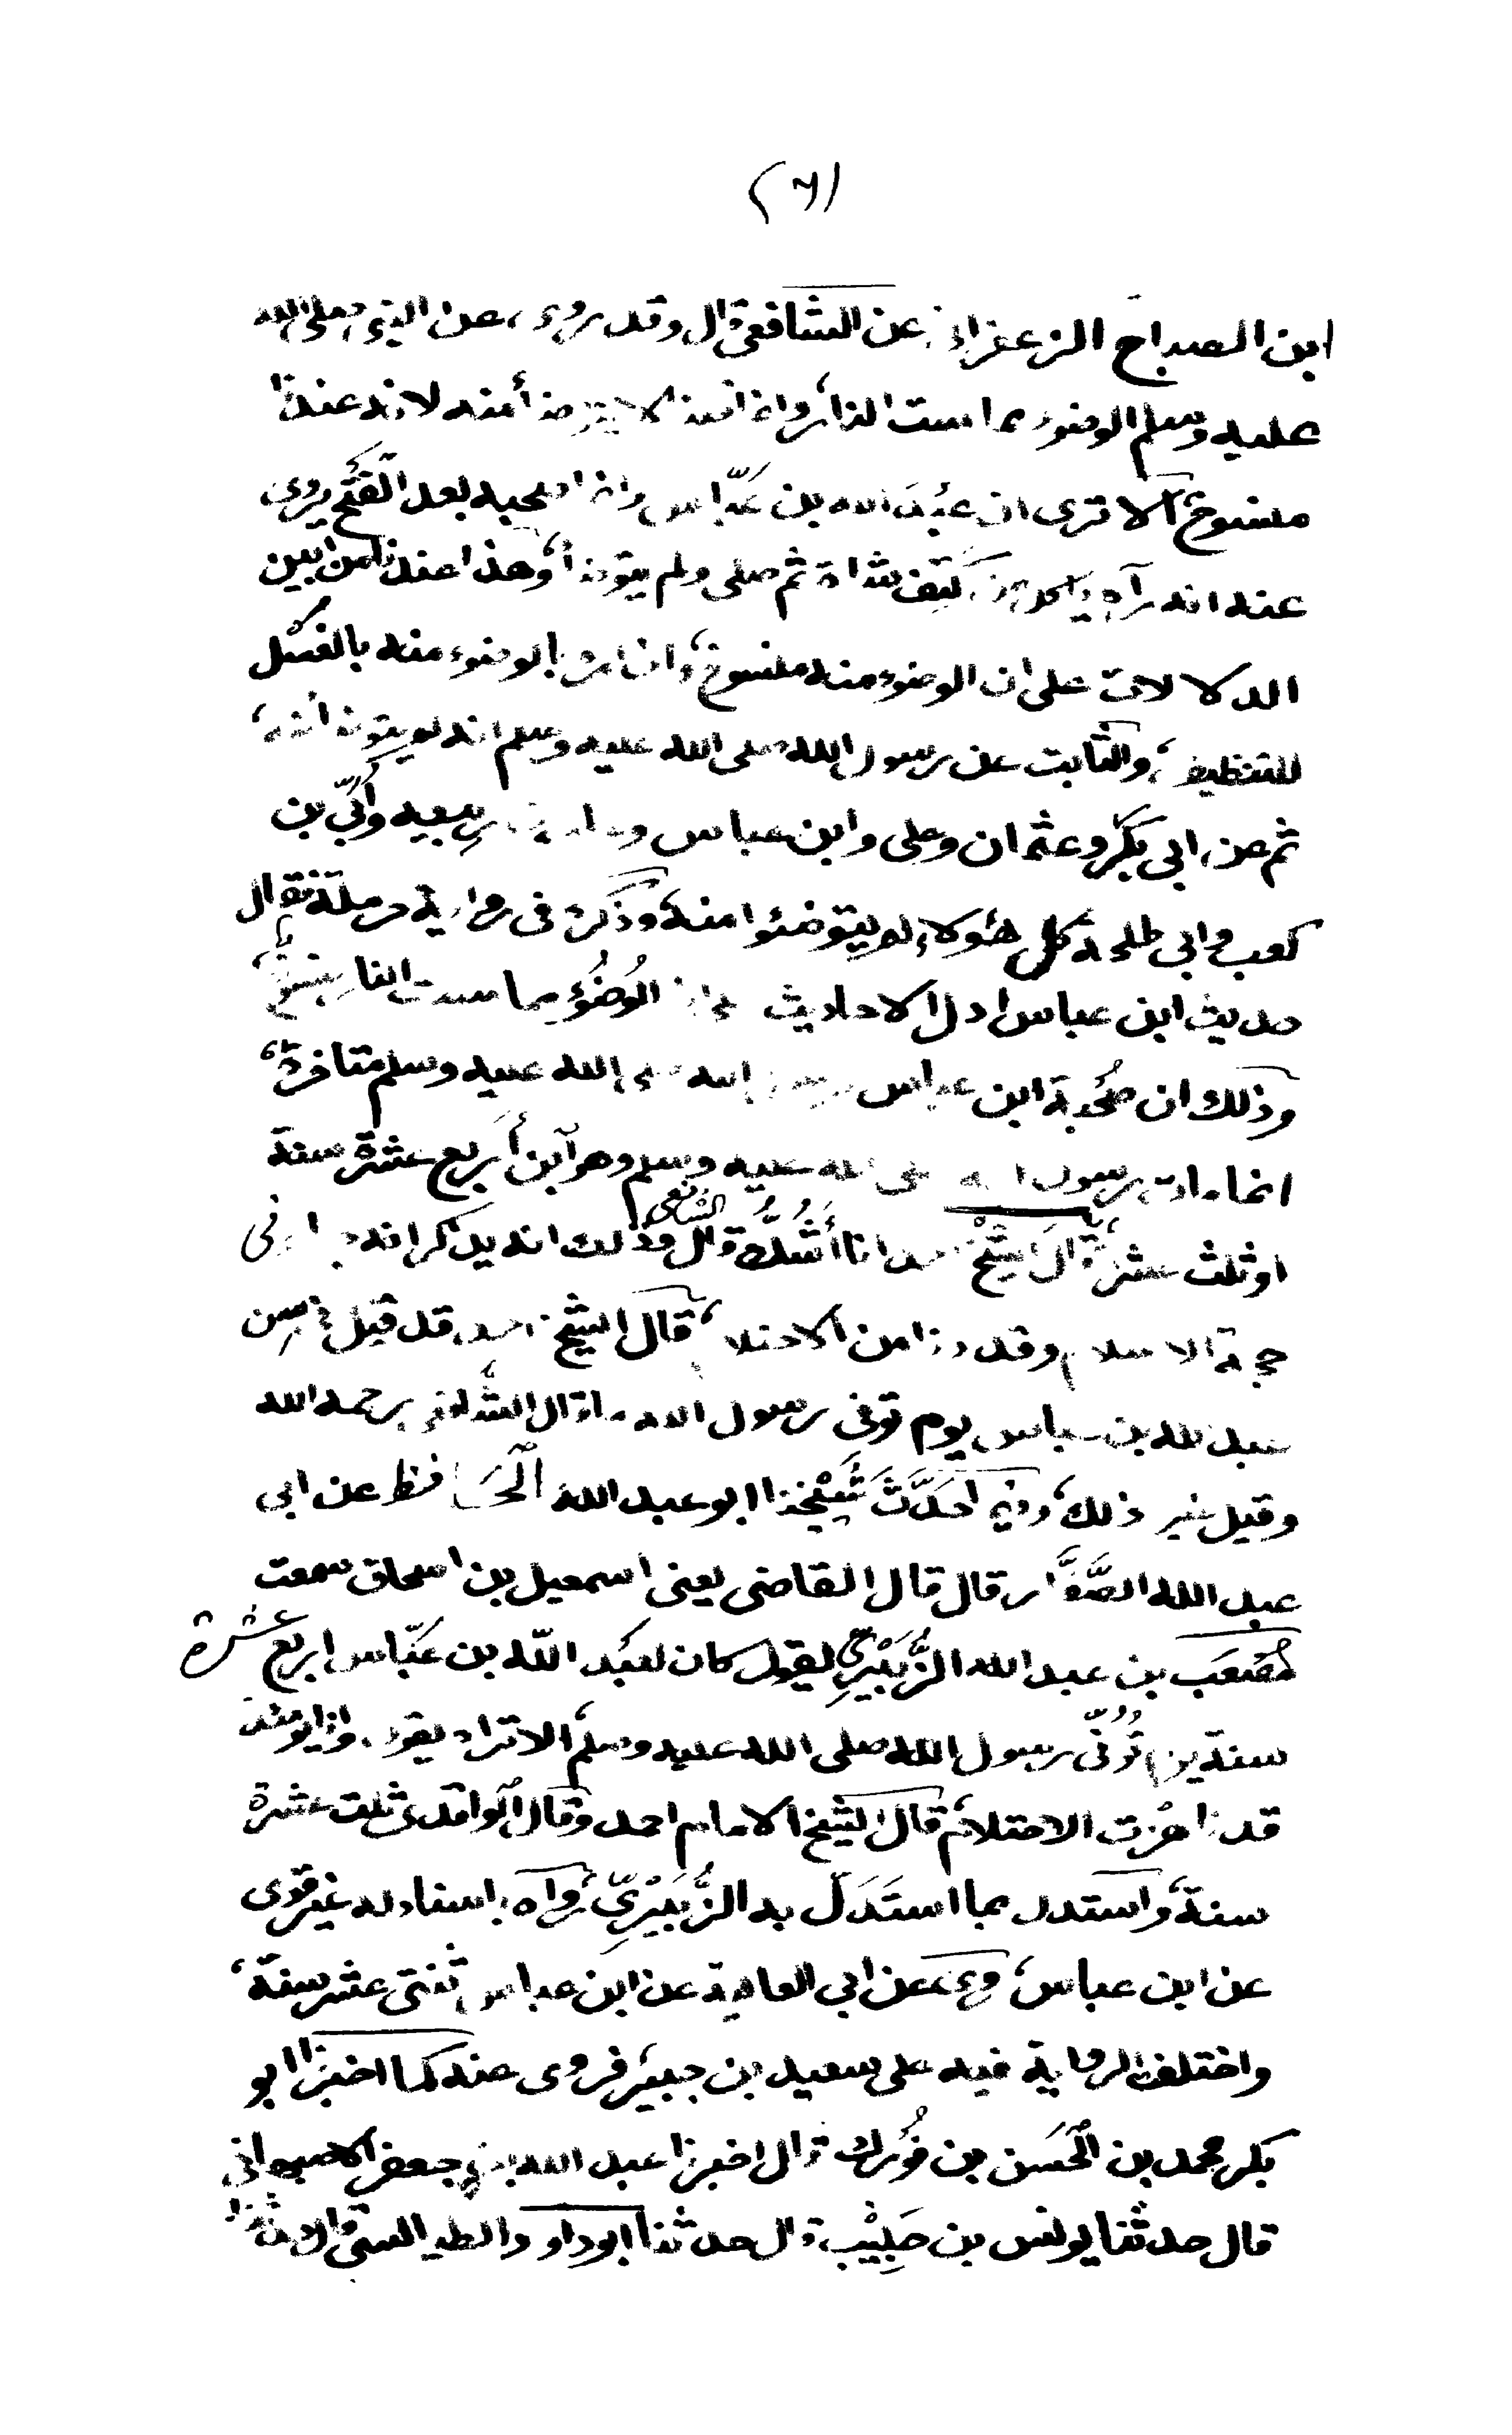 (٦)
ابن الصباح الزعفرانى عن الشافعى قال وقد روى، عن النبى صلى الله
عليه وسلم الوضوء مما مست النار وانما قلنا لا يتوضأ منه لانه عندنا
منسوخ، الا ترى ان عبد الله بن عبّاس وانما صحبه بعد الفتح يروى
عنه انه رآه يأكل من كتف شاة ثم صلى ولم يتوضأ، وهذا عندنا من ابين
الدلالات على ان الوضوء منه منسوخ، وان امره بالوضوء منه بالغسل
للتنظيف، والثابت عن رسول الله صلى الله عليه وسلم انه لم يتوضأ منه،
ثم عن ابى بكر وعثمان وعلى وابن عباس وعامر بن ربيعه وأبىّ بن
كعب وابى طلحة كل هؤلاء لم يتوضئوا منه، وذكره فى رواية حرملة فقال
حديث ابن عباس ادل الاحاديث على ان الوُضُوء مما مست النار منسوخ،
وذلك ان صُحبة ابن عباس رسول الله صلى الله عليه وسلم متأخرة،
انما مات رسول الله صلى الله عليه وسلم وهو ابن أربع عشرة سنة
او ثلث عشرة، قال الشيخ احمد انا أشُكُّ قال الشافعى وذلك انه يذكر انه جاء فى
حجة الاسلام وقد دنا من الاحتلام، قال الشيخ احمد، قد قيل فى سن
عبد الله بن عباس يوم توفى رسول الله ما قال الشافعى رحمه الله
وقيل غير ذلك، وفيما حَدَّثَ شَيْخنا ابو عبد الله الحافظ عن ابى
عبد الله الصَّفَّار قال قال القاضى يعنى اسمعيل بن اسحاق سمعت
مُصْعَب بن عبد الله الزُّبَيْرِىّ يقول كان لعبد الله بن عبّاس اربع عشرة
سنة يوم تُوُفّى رسول الله صلى الله عليه وسلم، الا تراه يقول، وانا يومئذ
قد ناهزت الاحتلام، قال الشيخ الامام احمد وقال الواقدى ثلث عشرة
سنة، واستدل بما استَدَلّ به الزُّبَيْرِىّ، رواه باسناد له غير قوى
عن ابن عباس، وروى عن ابى العالية عن ابن عباس ثنتى عشر سنة،
واختلف الرواية فيه على سعيد بن جبير، فروى عنه كما اخبرنا ابو
بكر محمد بن الحَسَن بن فُورك قال اخبرنا عبد الله بن جعفر الاصبهانى
قال حدثنا يونس بن حَبِيْب قال حدثنا ابو داود الطيالسى قال حدثنا